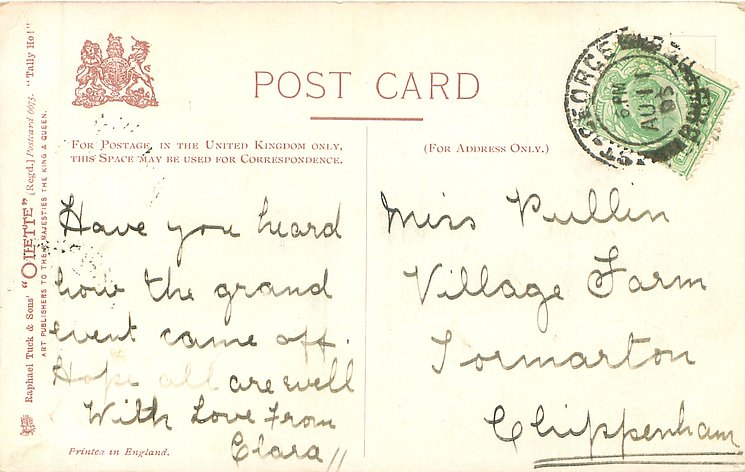 POST CARD
FOR POSTAGE IN THE UNITED KINGDOM ONLY,
THIS SPACE MAY BE USED FOR CORRESPONDENCE.
(FOR ADDRESS ONLY.)
Have you heard
how the grand
event came off.
Hope all are well
With Love from
Clara
Miss Pullin
Village Farm
Tormarton
Chippenham
Printed in England.
Raphael Tuck & Sons' "OILETTE" [Regd.] Postcard 6675. "Tally Ho!"
ART PUBLISHERS TO THEIR MAJESTIES THE KING & QUEEN.
6.PM
AU 11
05